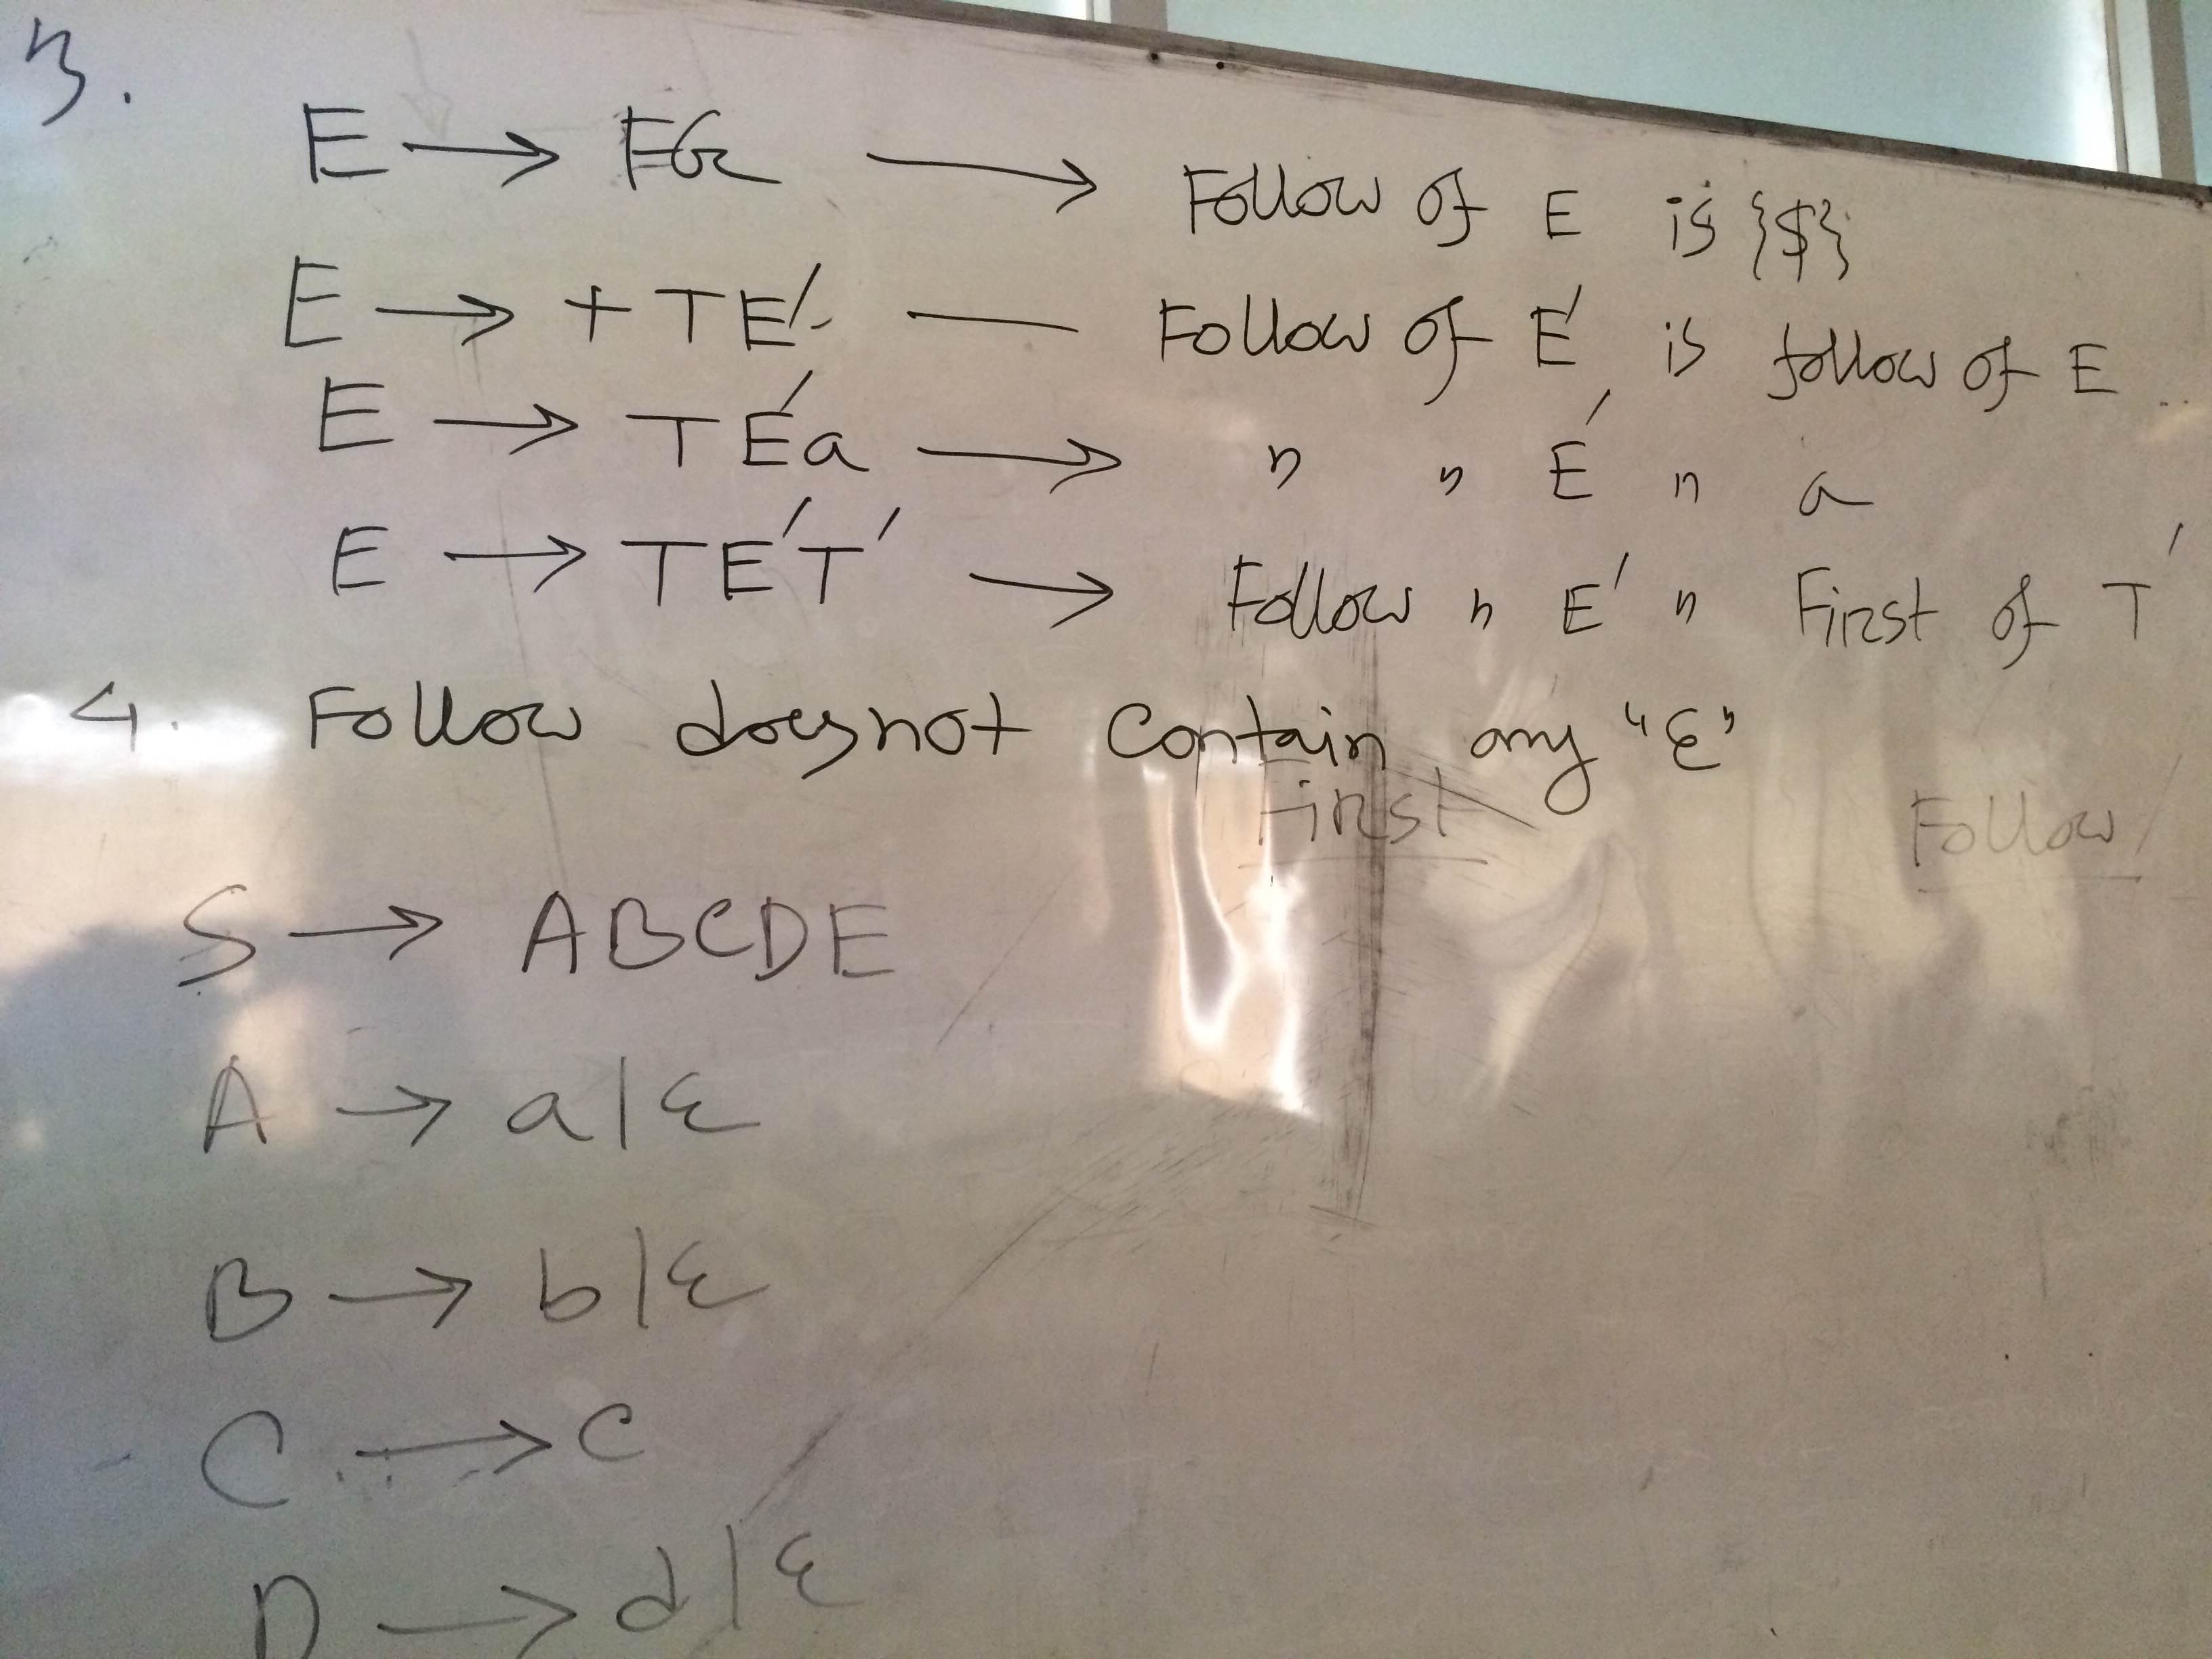 3.
E → FG → Follow of E is {$}
E → + TE' — Follow of E' is follow of E
E → TE'a → " " E' " a
E → TE'T' → Follow " E' " First of T'
4. Follow does not contain any "ε"
First Follow
S → ABCDE
A → a|ε
B → b|ε
C → c
D → d|ε